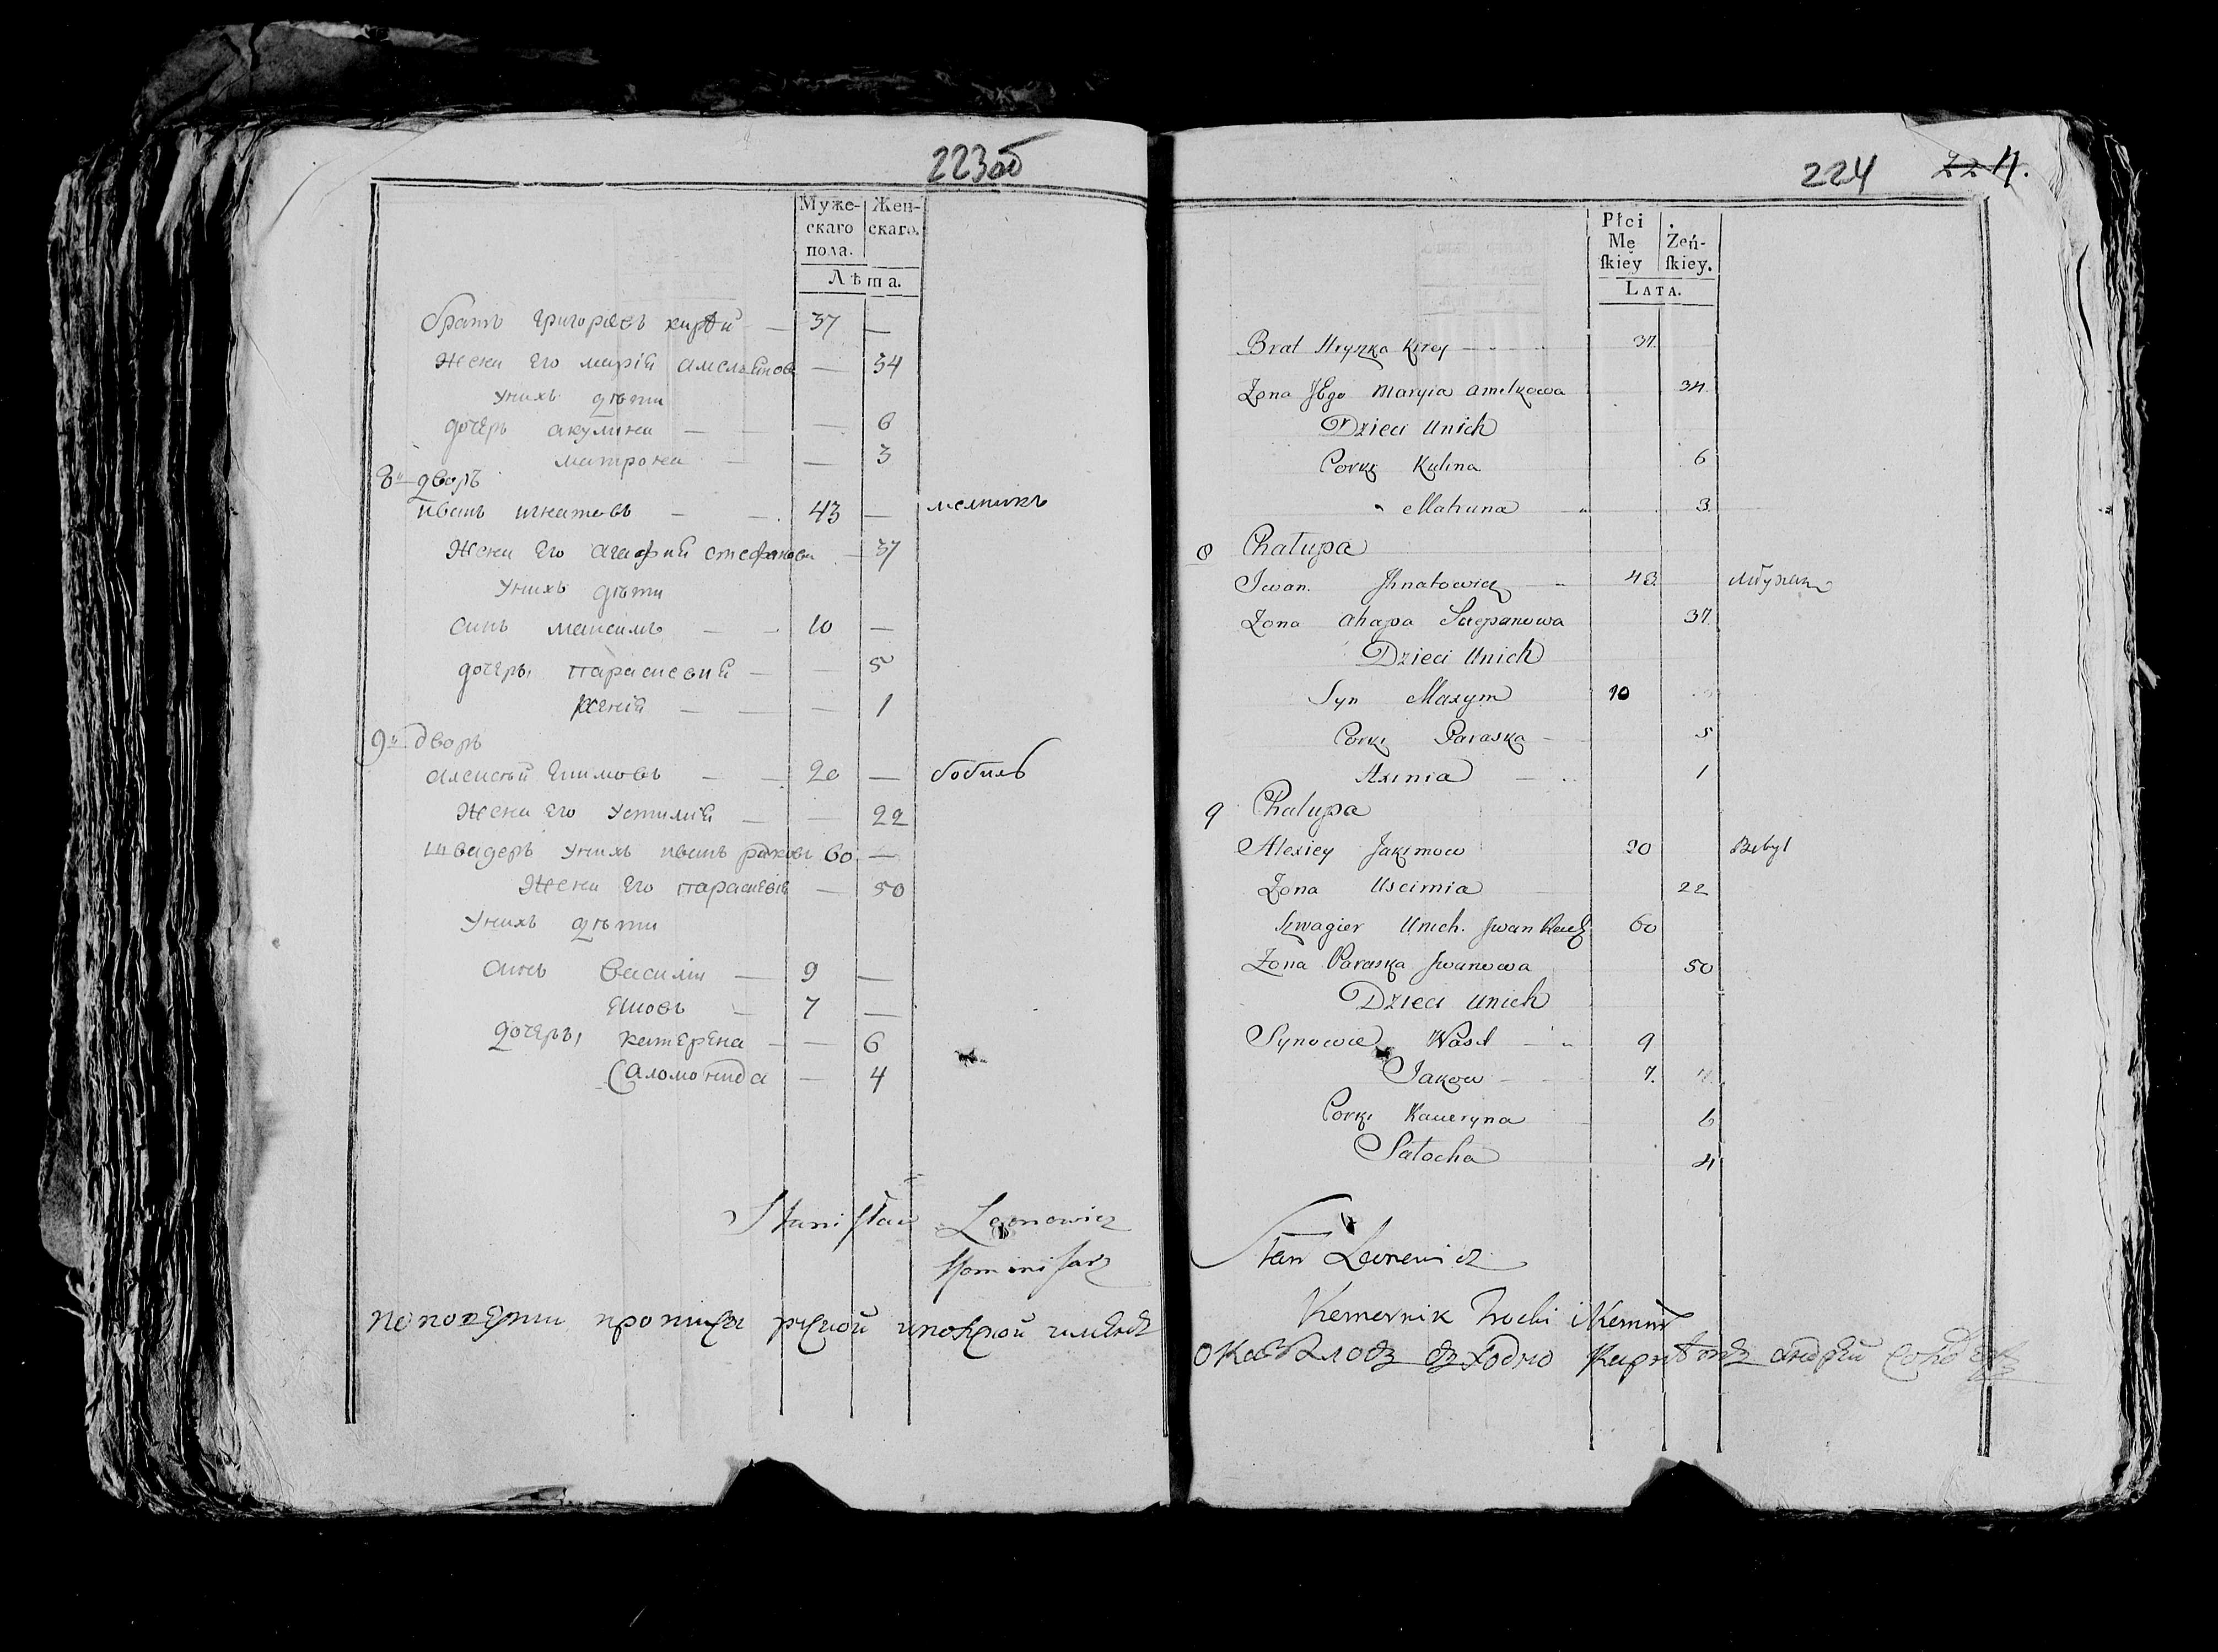 223об
Муже-
скаго
пола.
Жен-
скаго.
Лѣта.
братъ григорѣевъ кирѣй — 37 —
жена Его марія амельянова — 34
Унихъ дѣти
дочерь акулина — — 6
матрона — — 3
8й дворъ
иванъ игнатовъ — 43 — мелникъ
жена Его агафия стефанова — 37
Унихъ дѣти
синъ максимъ — 10 —
дочерь, параскевия — — 5
ксения — — 1
9й дворъ
алексѣй Екимовъ — 20 — бобиль
жена Его Устимия — — 22
швагеръ Унихъ иванъ 60 —
жена Его параскевия — 50
Унихъ дѣти
синъ василии — 9 —
Яковъ — 7 —
дочерь, катерена — — 6
Саломонида — 4
Stanisław Leonowicz
Kommisarz
224
224.
Płci
Mę
skiey
Żeń-
skiey.
LATA.
Brat Hryszka Kirey 37.
Zona JEgo Maryia amelkowa 34.
Dzieci Unich
Corki Kulina 6
Matruna 3.
8 Chałupa
Iwan. Ihnatowicz 43.
Zona ahapa Sciepanowa 37.
Dzieci Unich
Syn Maxym 10
Corki Paraska 5
Axinia 1
9 Chałupa
Alexiey Jakimow 20 Bobyl
Zona Uscimia 22
Szwagier Unich. Iwan 60
Zona Paraska Iwanowa 50
Dzieci Unich
Synowie Wasil 9
Jakow 7.
Corki Kacieryna 6
Sałocha 4
Stan Leonowicz
Komornik Trocki i